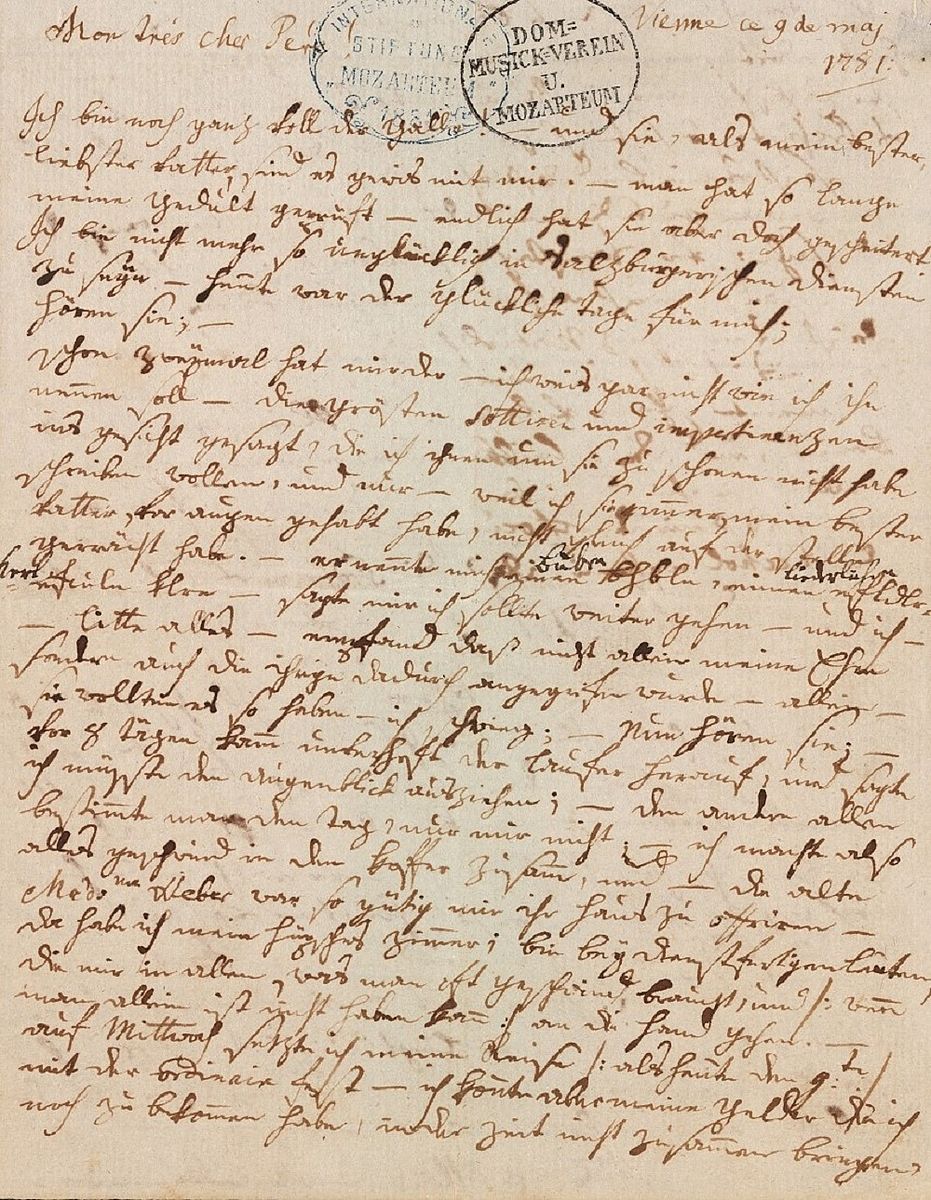 Mon trés cher Pere!
Vienne ce 9 de maj
1781:
INTERNATIONALE
STIFTUNG
"MOZARTEUM"
DOM=
MUSICK=VEREIN
U.
MOZARTEUM
Ich bin noch ganz voll der Galle! — und sie, als mein bester,
liebster vatter, sind es gewis mit mir. — man hat so lange
meine gedult geprüft — endlich hat sie aber doch gescheitert.
Ich bin nicht mehr so unglücklich in Salzburgerischen diensten
zu seyn — heute war der glückliche tage für mich;
hören sie; —
schon zweymal hat mir der — ich weis gar nicht wie ich ihn
nennen soll — die grösten sottisen und impertinenzen
ins gesicht gesagt, die ich ihnen um sie zu schonen nicht habe
schreiben wollen, und nur — weil ich sie immer mein bester
vatter vor augen gehabt habe, nicht gleich auf der stelle
gerrächt habe. — er nennte mich einen buben, einen liederlichen
kerl — sagte mir ich sollte weiter gehen — und ich —
— litte alles — empfand daß nicht allein meine Ehre
sondern auch die ihrige dadurch angegriffen wurde — allein —
sie wollten es so haben — ich schwieg. — Nun hören sie; —
vor 8 tägen kamm unverhoft der laufer herauf, und sagte
ich müsste den augenblick ausziehen; — den andern allen
bestimmte man den tag, nur mir nicht; — ich machte also
alles geschwind in den koffer zusamm, und — die alte
Mad:me Weber war so gütig mir ihr haus zu offriren —
da habe ich mein hüpsches zimmer; bin bey dienstfertigen leuten,
die mir in allem, was man oft geschwind braucht, und |: wenn
man allein ist nicht haben kann :| an die hand gehen. —
auf Mittwoch setzte ich meine Reise |: als heute den 9:ten |
mit der ordinaire fest — ich konnte aber meine gelder die ich
noch zu bekommen habe, in der zeit nicht zusammen bringen,